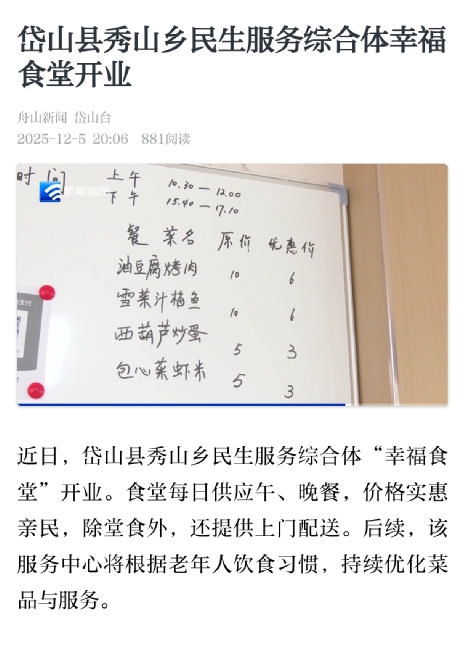 岱山县秀山乡民生服务综合体幸福
食堂开业
舟山新闻 岱山台
2025-12-5 20:06 881阅读
时间 上午 10.30—12.00
下午 15.40—17.10
餐 菜名 原价 优惠价
油豆腐烤肉 10 6
雪菜汁梅鱼 10 6
西葫芦炒蛋 5 3
包心菜虾米 5 3
近日，岱山县秀山乡民生服务综合体“幸福食
堂”开业。食堂每日供应午、晚餐，价格实惠
亲民，除堂食外，还提供上门配送。后续，该
服务中心将根据老年人饮食习惯，持续优化菜
品与服务。